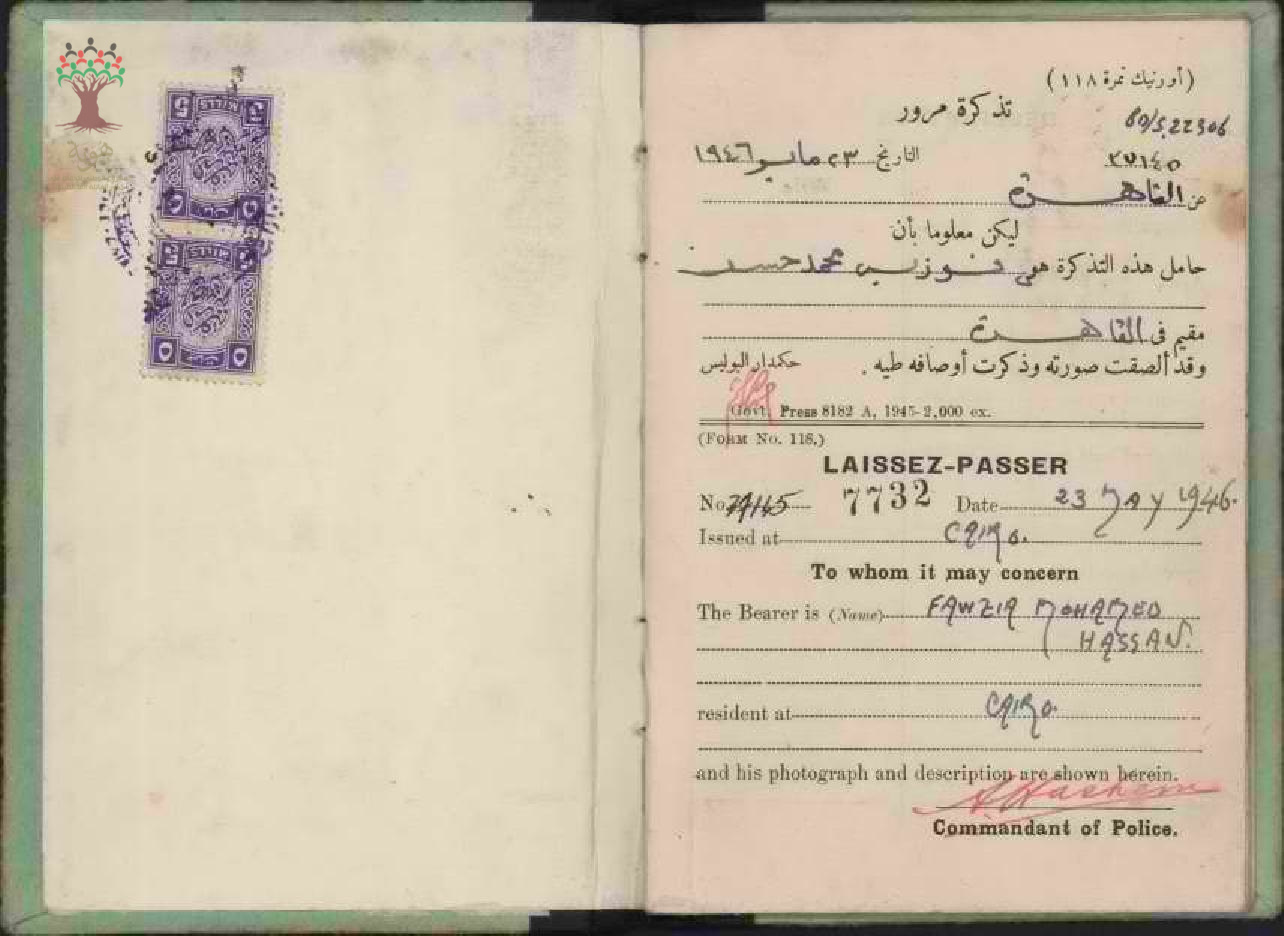 MILLS
MILLS
(أورنيك نمرة ١١٨)
تذكرة مرور
80/5.22306
٣٧١٤٥
التاريخ ٢٣ مايو ١٩٤٦
عن القاهرة
ليكن معلوما بأن
حامل هذه التذكرة هي فوزيه محمد حسن
مقيم فى القاهرة
وقد ألصقت صورته وذكرت أوصافه طيه .
حكمدار البوليس
Govt. Press 8182 A, 1945-2,000 ex.
(Form No. 118.)
LAISSEZ-PASSER
No. 7732 Date 23 MAY 1946.
Issued at CAIRO.
To whom it may concern
The Bearer is (Name) FAWZIA MOHAMED
HASSAN.
resident at CAIRO.
and his photograph and description are shown herein.
A. Hashem
Commandant of Police.